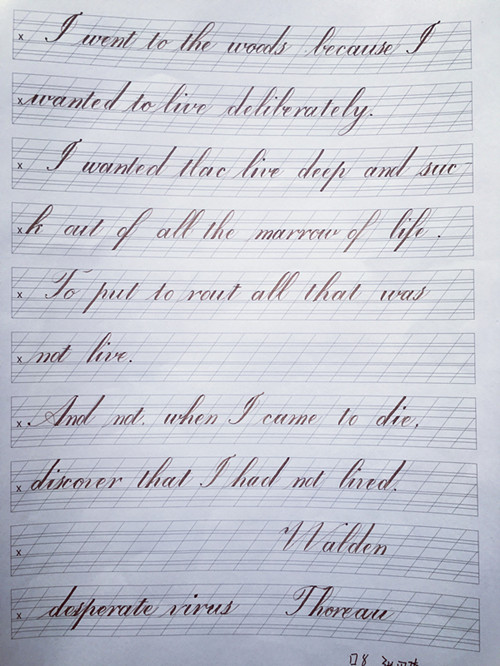 I went to the woods because I
wanted to live deliberately.
I wanted tlac live deep and suc-
k out of all the marrow of life.
To put to rout all that was
not live.
And not. when I came to die.
discover that I had not lived.
Walden
desperate virus Thoreau